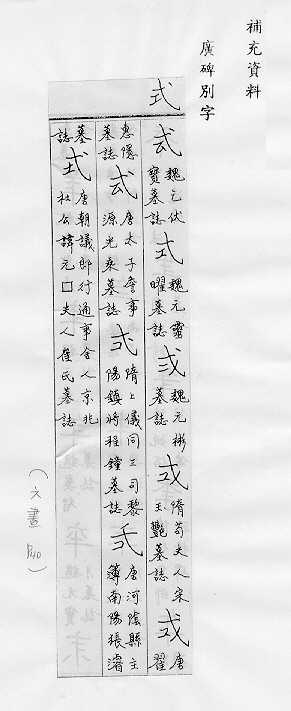 補充資料
廣碑別字
式
魏乞伏
寶墓誌
式
魏元靈
曜墓誌
魏元彬
墓誌
隋苟夫人宋
玉艷墓誌
唐
翟
惠隱
墓誌
唐太子詹事
源光乘墓誌
隋上儀同三司黎
陽鎮將程鐘墓誌
唐河陰縣主
簿南陽張濬
墓
誌
式
唐朝議郎行通事舍人京兆
杜公諱元□夫人崔氏墓誌
(文畫 P40)